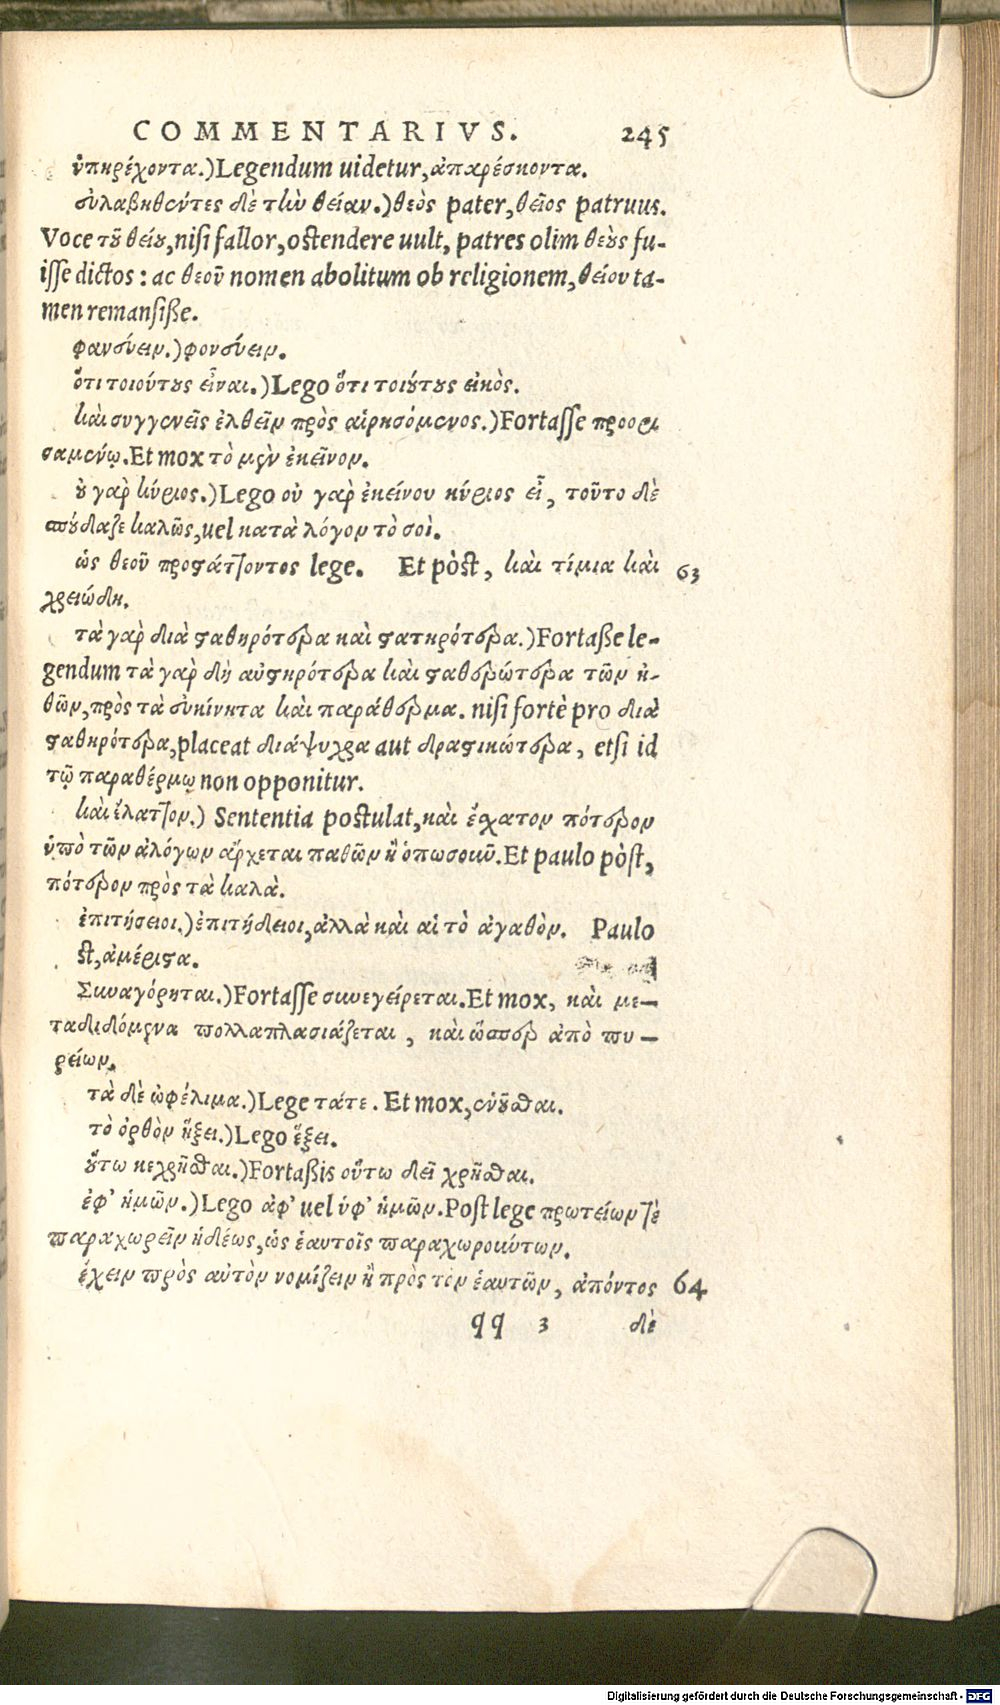 COMMENTARIVS. 245
ὑπηρέχοντα.) Legendum uidetur, ἀπαρέσκοντα.
συλλαβηθέντες δὲ τὴν θείαν.) θεὸς pater, θεῖος patruus.
Voce τοῦ θείου, nisi fallor, ostendere uult, patres olim θεοὺς fu-
isse dictos: ac θεοῦ nomen abolitum ob religionem, θείον ta-
men remansiße.
φανεύειν.) φονεύειν.
ὅτι τοιούτους εἶναι.) Lego ὅτι τοιούτους εἰκὸς.
καὶ συγγενεῖς ἐλθεῖν πρὸς αἱρησόμενος.) Fortasse προορι
σαμένῳ. Et mox τὸ μὲν ἐκεῖνον.
οὐ γὰρ κύριος.) Lego οὐ γὰρ ἐκείνου κύριος εἶ, τοῦτο δὲ
σπούδαζε καλῶς, uel κατὰ λόγον τὸ σοὶ.
ὡς θεοῦ προστάττοντος lege. Et pòst, καὶ τίμια καὶ 63
χρειώδη.
τὰ γὰρ διὰ σταθηρότερα καὶ στατηρότερα.) Fortaße le-
gendum τὰ γὰρ δὴ αὐστηρότερα καὶ σταθερώτερα τῶν ἠ-
θῶν, πρὸς τὰ εὐκίνητα καὶ παράθερμα. nisi fortè pro διὰ
σταθηρότερα, placeat διάψυχρα aut δραστικώτερα, etsi id
τῷ παραθέρμῳ non opponitur.
καὶ ἔλαττον.) Sententia postulat, καὶ ἔσχατον πότερον
ὑπὸ τῶν ἀλόγων ἄρχεται παθῶν ἢ ὁπωσοιοῦν. Et paulo pòst,
πότερον πρὸς τὰ καλὰ.
ἐπιτήσειοι.) ἐπιτήδειοι, ἀλλὰ καὶ αἱ τὸ ἀγαθὸν. Paulo
st, ἀμέριστα.
Συναγόρηται.) Fortasse συνεγείρεται. Et mox, καὶ με-
ταδιδόμενα πολλαπλασιάζεται, καὶ ὥσπερ ἀπὸ πυ-
ρείων.
τὰ δὲ ὠφέλιμα.) Lege τάτε. Et mox, ἐνοῦσθαι.
τὸ ὀρθὸν ἥξει.) Lego ἕξει.
οὕτω κεχρῆσθαι.) Fortaßis οὕτω δεῖ χρῆσθαι.
ἐφ' ἡμῶν.) Lego ἀφ' uel ὑφ' ἡμῶν. Post lege πρωτείων τε
παραχωρεῖν ἡδέως, ὡς ἑαυτοῖς παραχωρούντων.
ἔχειν πρὸς αὐτὸν νομίζειν ἢ πρὸς τὸν ἑαυτῶν, ἀπόντος 64
qq 3 δὲ
Digitalisierung gefördert durch die Deutsche Forschungsgemeinschaft - DFG